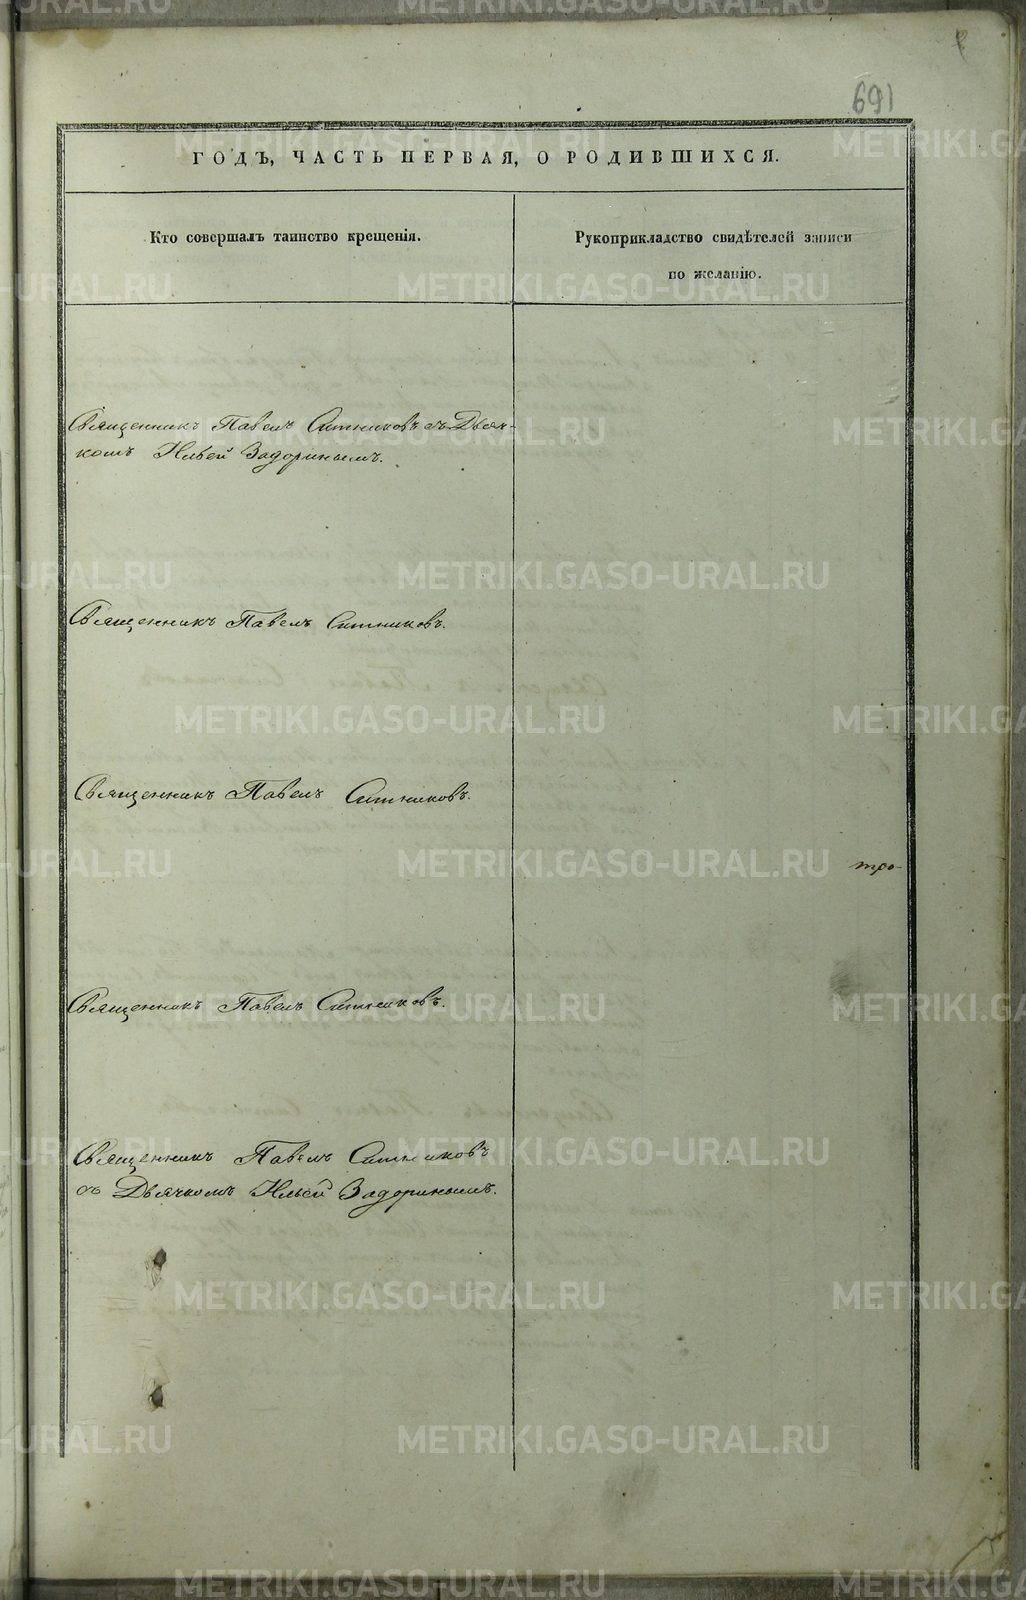 691
ГОДЪ, ЧАСТЬ ПЕРВАЯ, О РОДИВШИХСЯ.
Кто совершалъ таинство крещенія.
Рукоприкладство свидѣтелей записи
по желанію.
Священникъ Павелъ Ситниковъ съ Дьяч-
комъ Ильей Задоринымъ.
Священникъ Павелъ Ситниковъ.
Священникъ Павелъ Ситниковъ.
тро-
Священникъ Павелъ Ситниковъ.
Священникъ Павелъ Ситниковъ
съ Дьячкомъ Ильей Задоринымъ.
METRIKI.GASO-URAL.RU